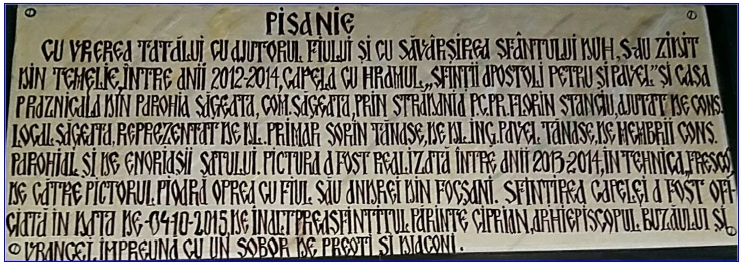 PISANIE
CU VREREA TATĂLUI CU AJUTORUL FIULUI ȘI CU SĂVÂRȘIREA SFÂNTULUI DUH, S-AU ZIDIT
DIN TEMELIE, ÎNTRE ANII 2012-2014, CAPELA CU HRAMUL „SFINȚII APOSTOLI PETRU ȘI PAVEL” ȘI CASA
PRAZNICALĂ DIN PAROHIA SĂGEATA, COM. SĂGEATA, PRIN STRĂDANIA P.C.PR. FLORIN STANCIU, AJUTAT DE CONS.
LOCAL SĂGEATA, REPREZENTAT DE DL. PRIMAR SORIN TĂNASE, DE DL. ING. PAVEL TĂNASE, DE MEMBRII CONS.
PAROHIAL ȘI DE ENORIAȘII SATULUI. PICTURA A FOST REALIZATĂ ÎNTRE ANII 2013-2014, ÎN TEHNICA „FRESCO”,
DE CĂTRE PICTORUL PIOARĂ OPREA CU FIUL SĂU ANDREI DIN FOCȘANI. SFINȚIREA CAPELEI A FOST OFI-
CIATĂ ÎN DATA DE -04-10-2015, DE ÎNALTPREASFINȚITUL PĂRINTE CIPRIAN, ARHIEPISCOPUL BUZĂULUI ȘI
VRANCEI, ÎMPREUNĂ CU UN SOBOR DE PREOȚI ȘI DIACONI.